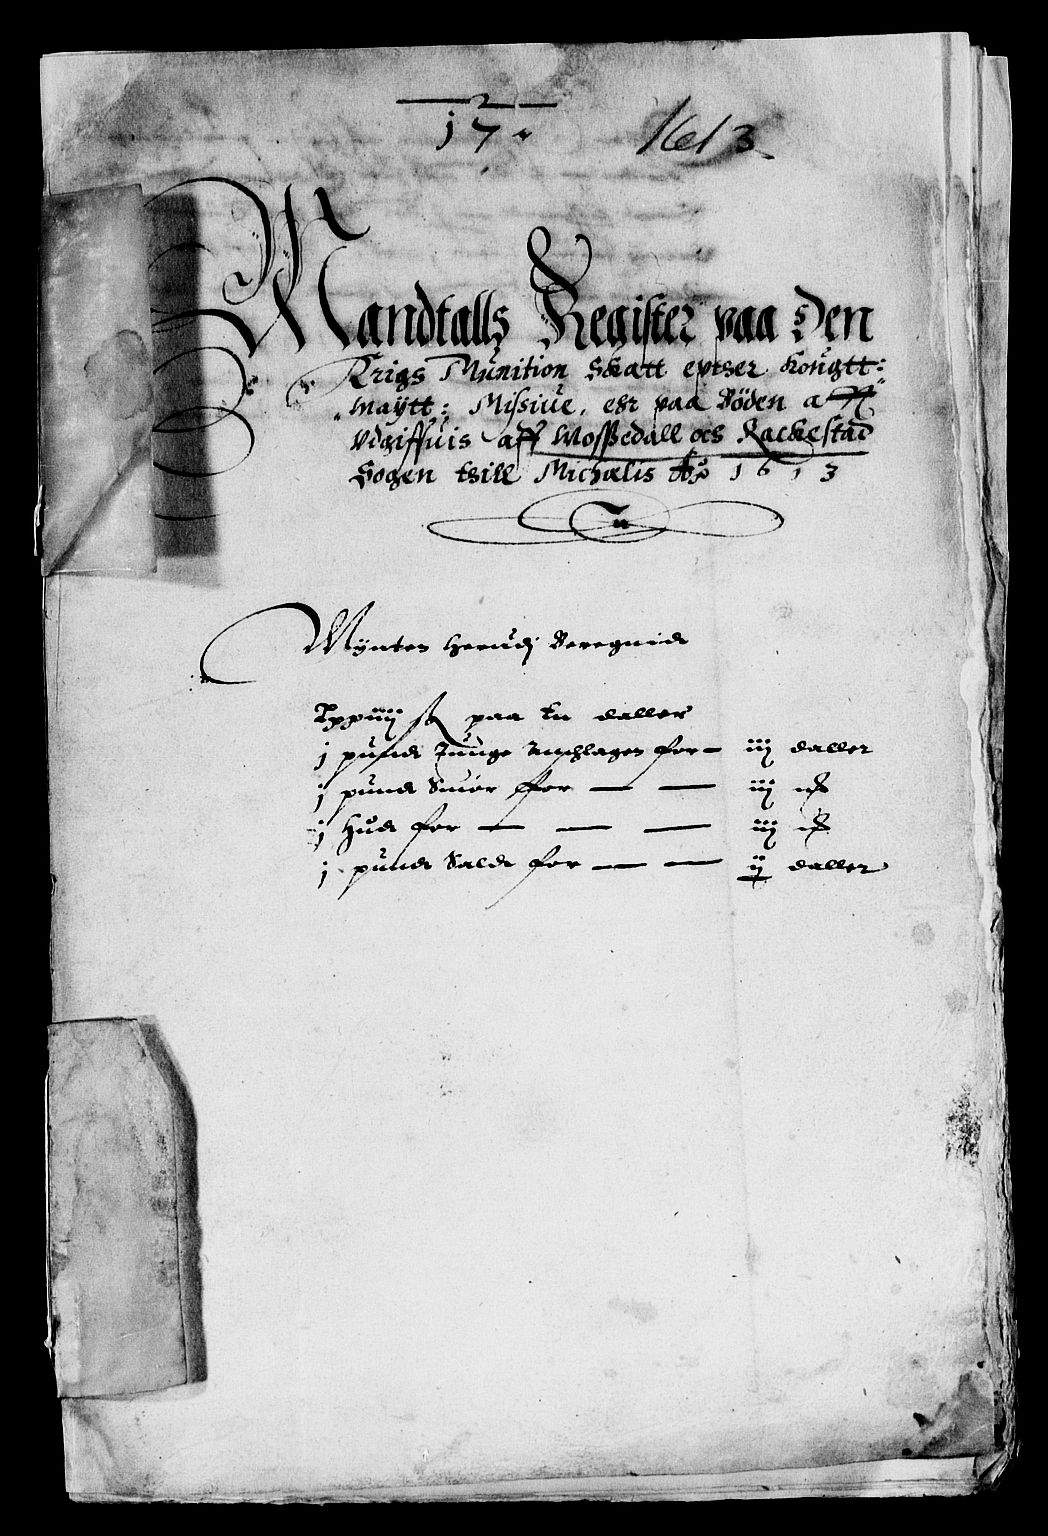 2
17
1613
Mandtalls Register paa Den
Krigs Munition Skatt epther Konngtt:
Maÿtt: Missiue, ehr paa Böden aff
Vdgiffuis aff Wossedall och Rackestad
Sogen thill Michælis Ao 1613
Mÿnten herudj Beregnidt
paa En daller
j pundt Tunge for — iiij daller
j pundt Smör for — — iiij
j Hud for — — — iiij
j pundt Saldt for — — ij daller